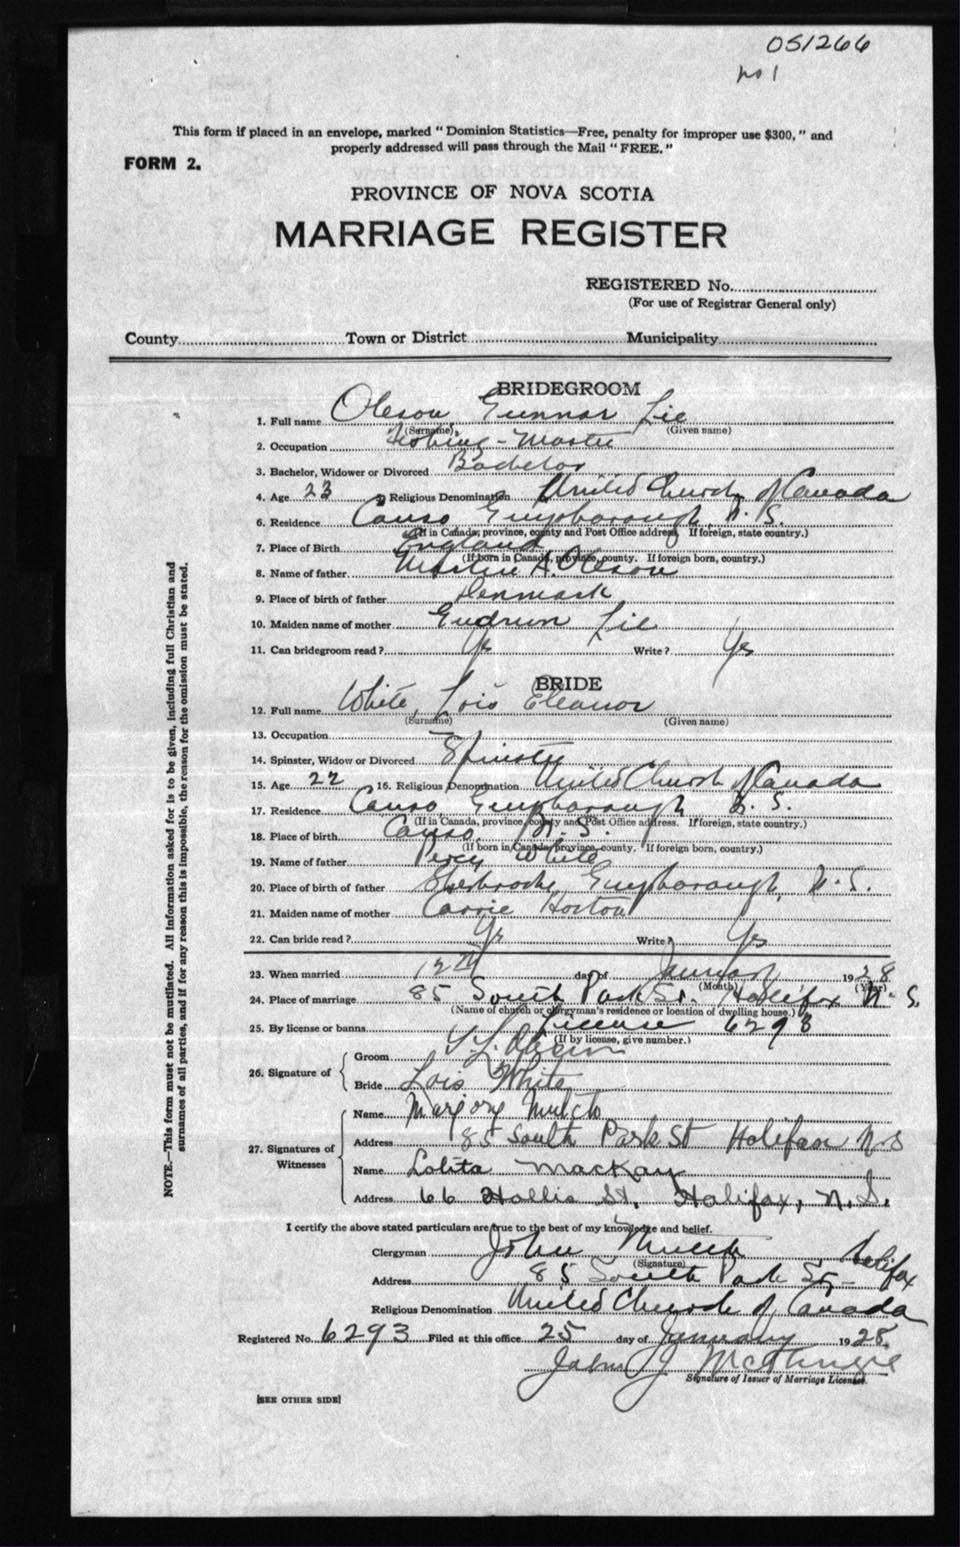 051266
No 1
This form if placed in an envelope, marked "Dominion Statistics—Free, penalty for improper use $300," and
properly addressed will pass through the Mail "FREE."
FORM 2.
PROVINCE OF NOVA SCOTIA
MARRIAGE REGISTER
REGISTERED No.
(For use of Registrar General only)
County Town or District Municipality
BRIDEGROOM
1. Full name Oleson, Gunnar Lie
(Surname) (Given name)
2. Occupation Fishing-Master
3. Bachelor, Widower or Divorced Bachelor
4. Age 23 5 Religious Denomination United Church of Canada
6. Residence Canso Guysborough, N.S.
(If in Canada, province, county and Post Office address. If foreign, state country.)
7. Place of Birth England
(If born in Canada, province, county. If foreign born, country.)
8. Name of father A. Oleson
9. Place of birth of father Denmark
10. Maiden name of mother Gudrun Lie
11. Can bridegroom read? Yes Write? Yes
BRIDE
12. Full name White, Lois Eleanor
(Surname) (Given name)
13. Occupation
14. Spinster, Widow or Divorced Spinster
15. Age 22 16. Religious Denomination United Church of Canada
17. Residence Canso Guysborough N.S.
(If in Canada, province, county and Post Office address. If foreign, state country.)
18. Place of birth Canso, N.S.
(If born in Canada, province, county. If foreign born, country.)
19. Name of father Percy White
20. Place of birth of father Sherbrooke, Guysborough, N.S.
21. Maiden name of mother Carrie Horton
22. Can bride read? Yes Write? Yes
23. When married 12th day of January 1928
(Month) (Year)
24. Place of marriage 85 South Park St. Halifax N.S.
(Name of church or clergyman's residence or location of dwelling house.)
25. By license or banns License 6293
(If by license, give number.)
26. Signature of
Groom
Bride Lois White
27. Signatures of
Witnesses
Name Marjory
Address 85 South Park St Halifax N.S
Name Lolita MacKay
Address 66 Hollis St, Halifax, N.S.
I certify the above stated particulars are true to the best of my knowledge and belief.
Clergyman John
(Signature)
Address 85 South Park St- Halifax
Religious Denomination United Church of Canada
Registered No. 6293 Filed at this office 25 day of January 1928
John J.
Signature of Issuer of Marriage Licenses.
[SEE OTHER SIDE]
NOTE.—This form must not be mutilated. All information asked for is to be given, including full Christian and
surnames of all parties, and if for any reason this is impossible, the reason for the omission must be stated.